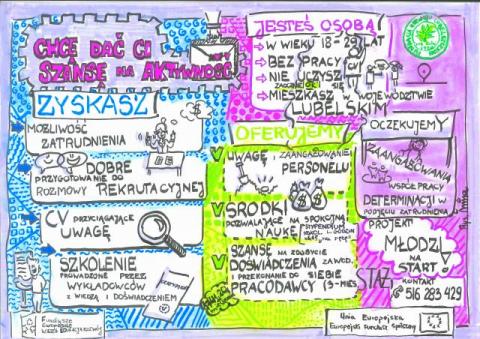 CHCĘ DAĆ CI
SZANSĘ NA AKTYWNOŚĆ
JESTEŚ OSOBĄ
W WIEKU 18-29 LAT
BEZ PRACY
NIE UCZYSZ
SIĘ
MIESZKASZ W WOJEWÓDZTWIE
LUBELSKIM
ZYSKASZ
MOŻLIWOŚĆ
ZATRUDNIENIA
DOBRE
PRZYGOTOWANIE DO
ROZMOWY REKRUTACYJNEJ
CV PRZYCIĄGAJĄCE
UWAGĘ
SZKOLENIE
PROWADZONE PRZEZ
WYKŁADOWCÓW
Z WIEDZĄ I DOŚWIADCZENIEM
OFERUJEMY
UWAGĘ I ZAANGAŻOWANIE
PERSONELU
ŚRODKI
POZWALAJĄCE NA SPOKOJNĄ
NAUKĘ
STYPENDIUM
SZANSĘ NA ZDOBYCIE
DOŚWIADCZENIA ZAWOD.
I PRZEKONANIE DO SIEBIE
PRACODAWCY
STAŻ
OCZEKUJEMY
ZAANGAŻOWANIA
WSPÓŁPRACY
DETERMINACJI W
PODJĘCIU ZATRUDNIENIA
PROJEKT
MŁODZI
NA
START!
KONTAKT
516 283 429
Fundusze
Europejskie
Unia Europejska
Europejski Fundusz Społeczny